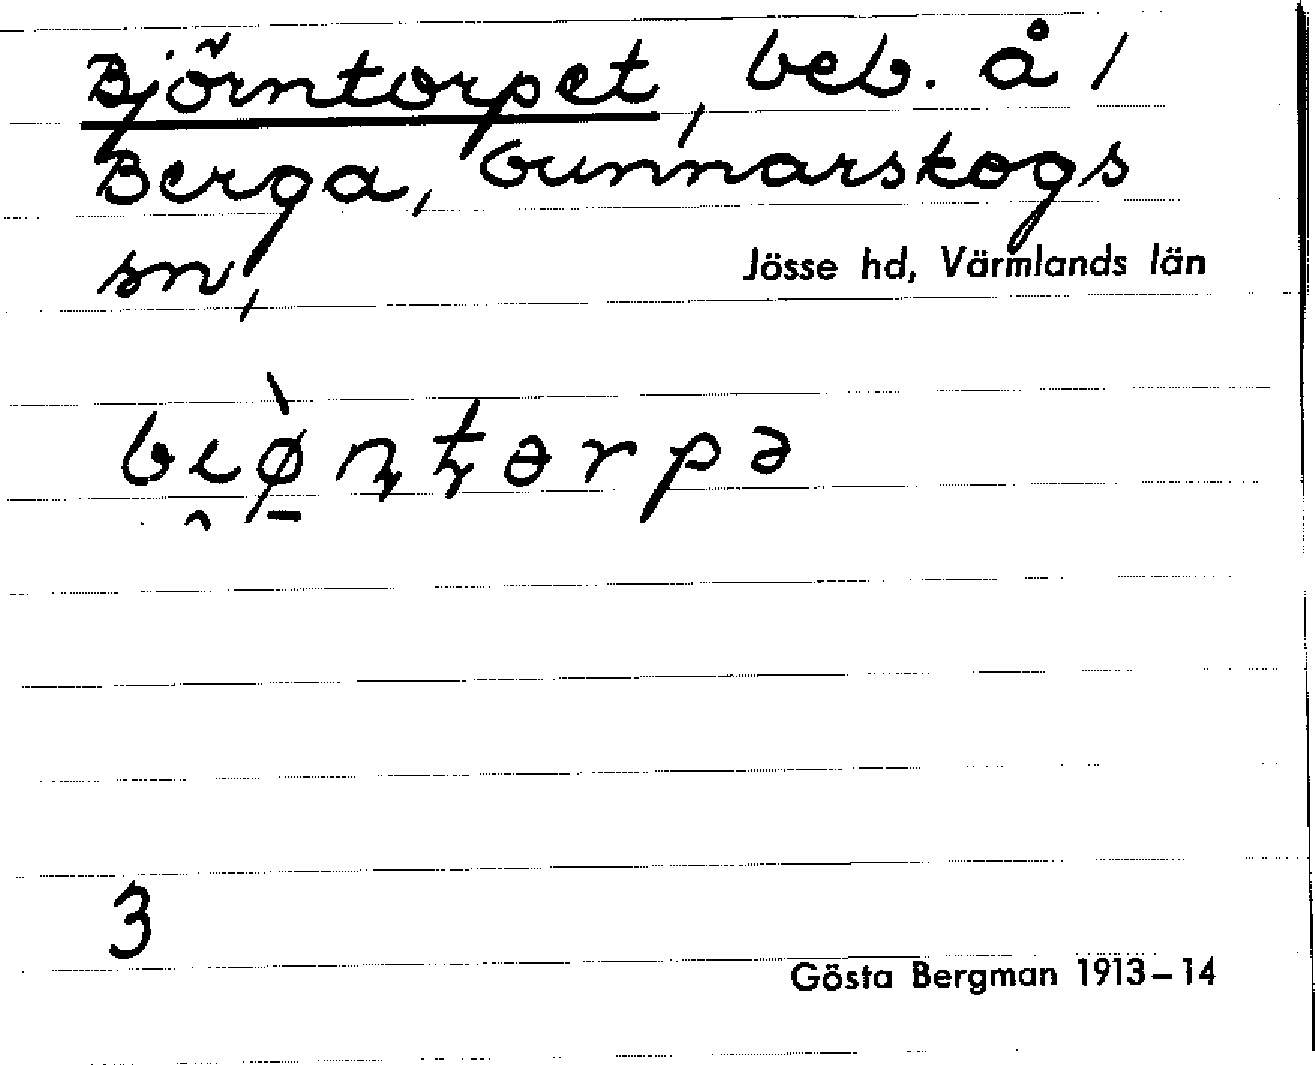 Björntorpet, beb. å /
Berga, Gunnarskogs
sn, Jösse hd, Värmlands län
bi̯ø̠̀ɳʈɵrpə
3
Gösta Bergman 1913–14